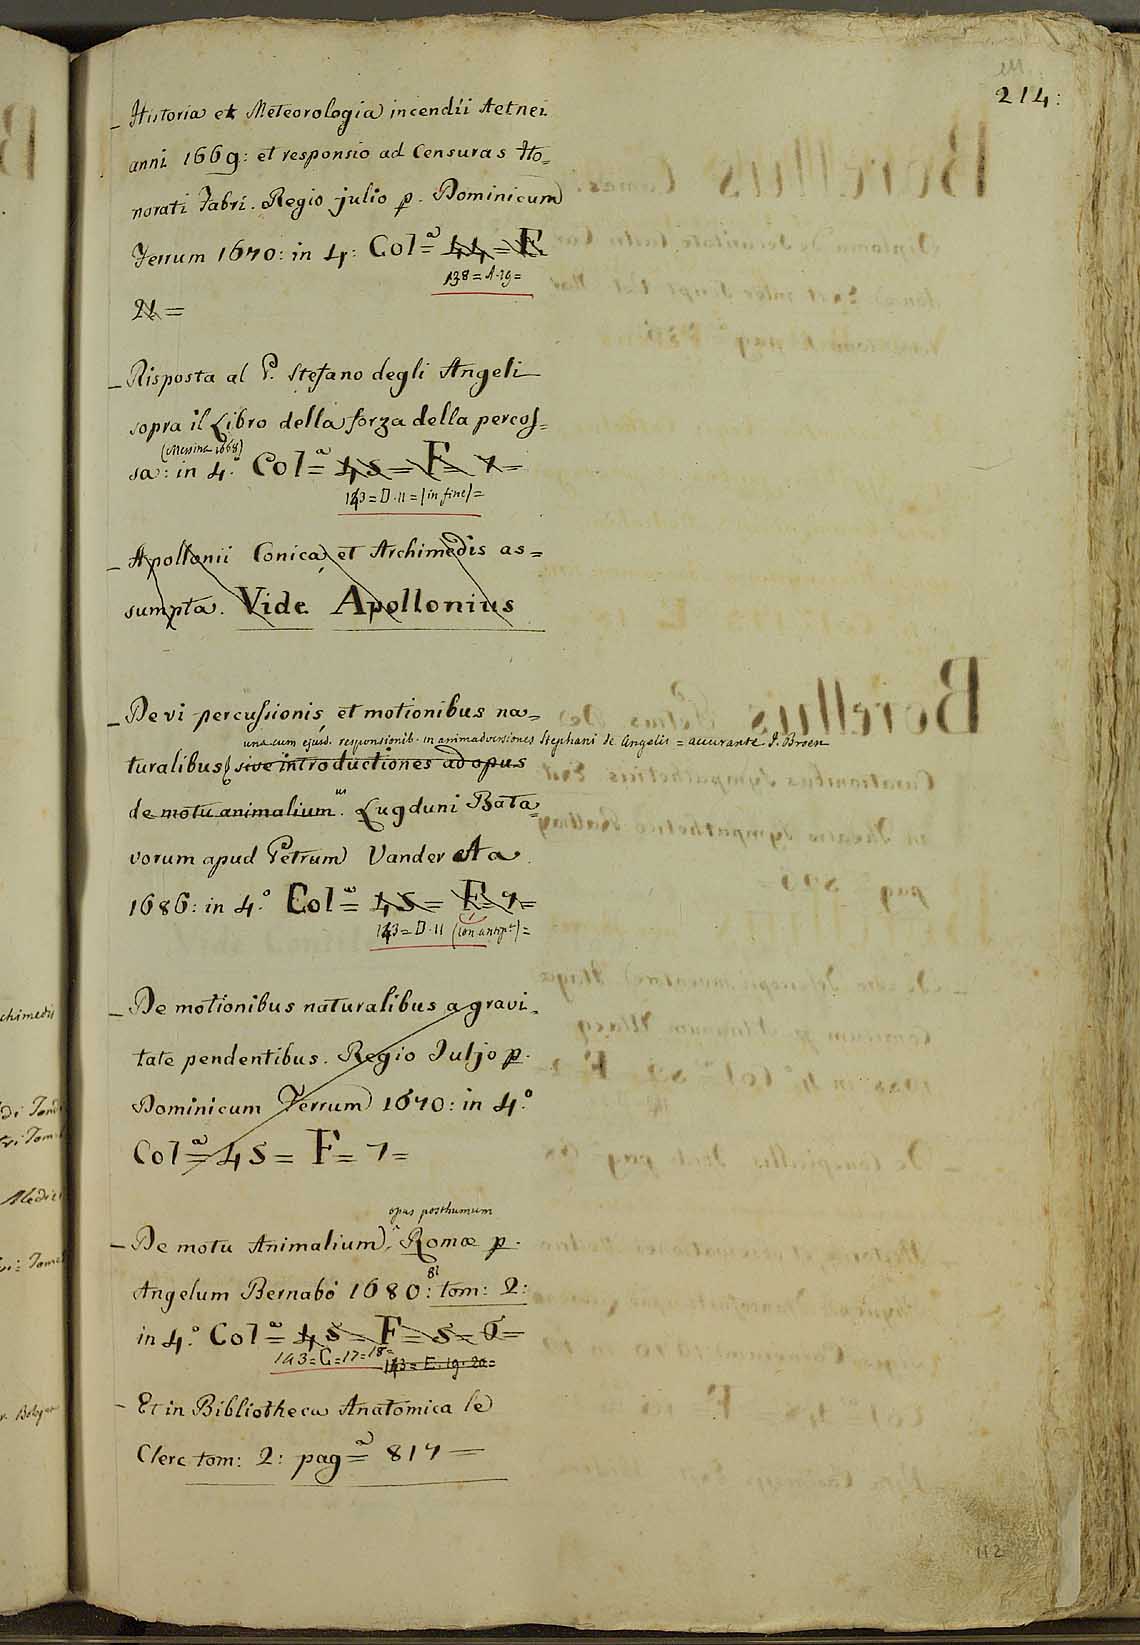 214:
Historia et Meteorologia incendii Aetnei
anni 1669: et responsio ad Censuras Ho=
norati Fabri. Regio julio p. Dominicum
Ferrum 1670: in 4: Colª= 44=F.
138=A.19=
21=
Risposta al P. Stefano degli Angeli
sopra il Libro della forza della percos=
(Messina 1668)
sa: in 4.º Colª= 45=F=7=
143=D.11=(in fine)=
Apollonii Conica, et Archimedis as=
sumpta. Vide Apollonius
De vi percussionis, et motionibus na=
una cum ejusd. responsionib. in animadversiones Stephani de Angelis = accurante J. Broen
turalibus sive introductiones ad opus
de motu animalium. Lugduni Bata=
vorum apud Petrum Vander Aa
1686: in 4.º Colª= 45= F=7=
143=D.11
De motionibus naturalibus a gravi=
tate pendentibus. Regio Juljo p.
Dominicum Ferrum 1670: in 4.º
Colª= 45= F= 7=
opus posthumum
De motu Animalium. Romæ p.
81
Angelum Bernabò 1680: tom: 2:
in 4.º Colª= 45=F=5=6=
143=G=17=18=
143=E.19.20=
Et in Bibliotheca Anatomica le
Clerc tom: 2: pagª= 817=
112